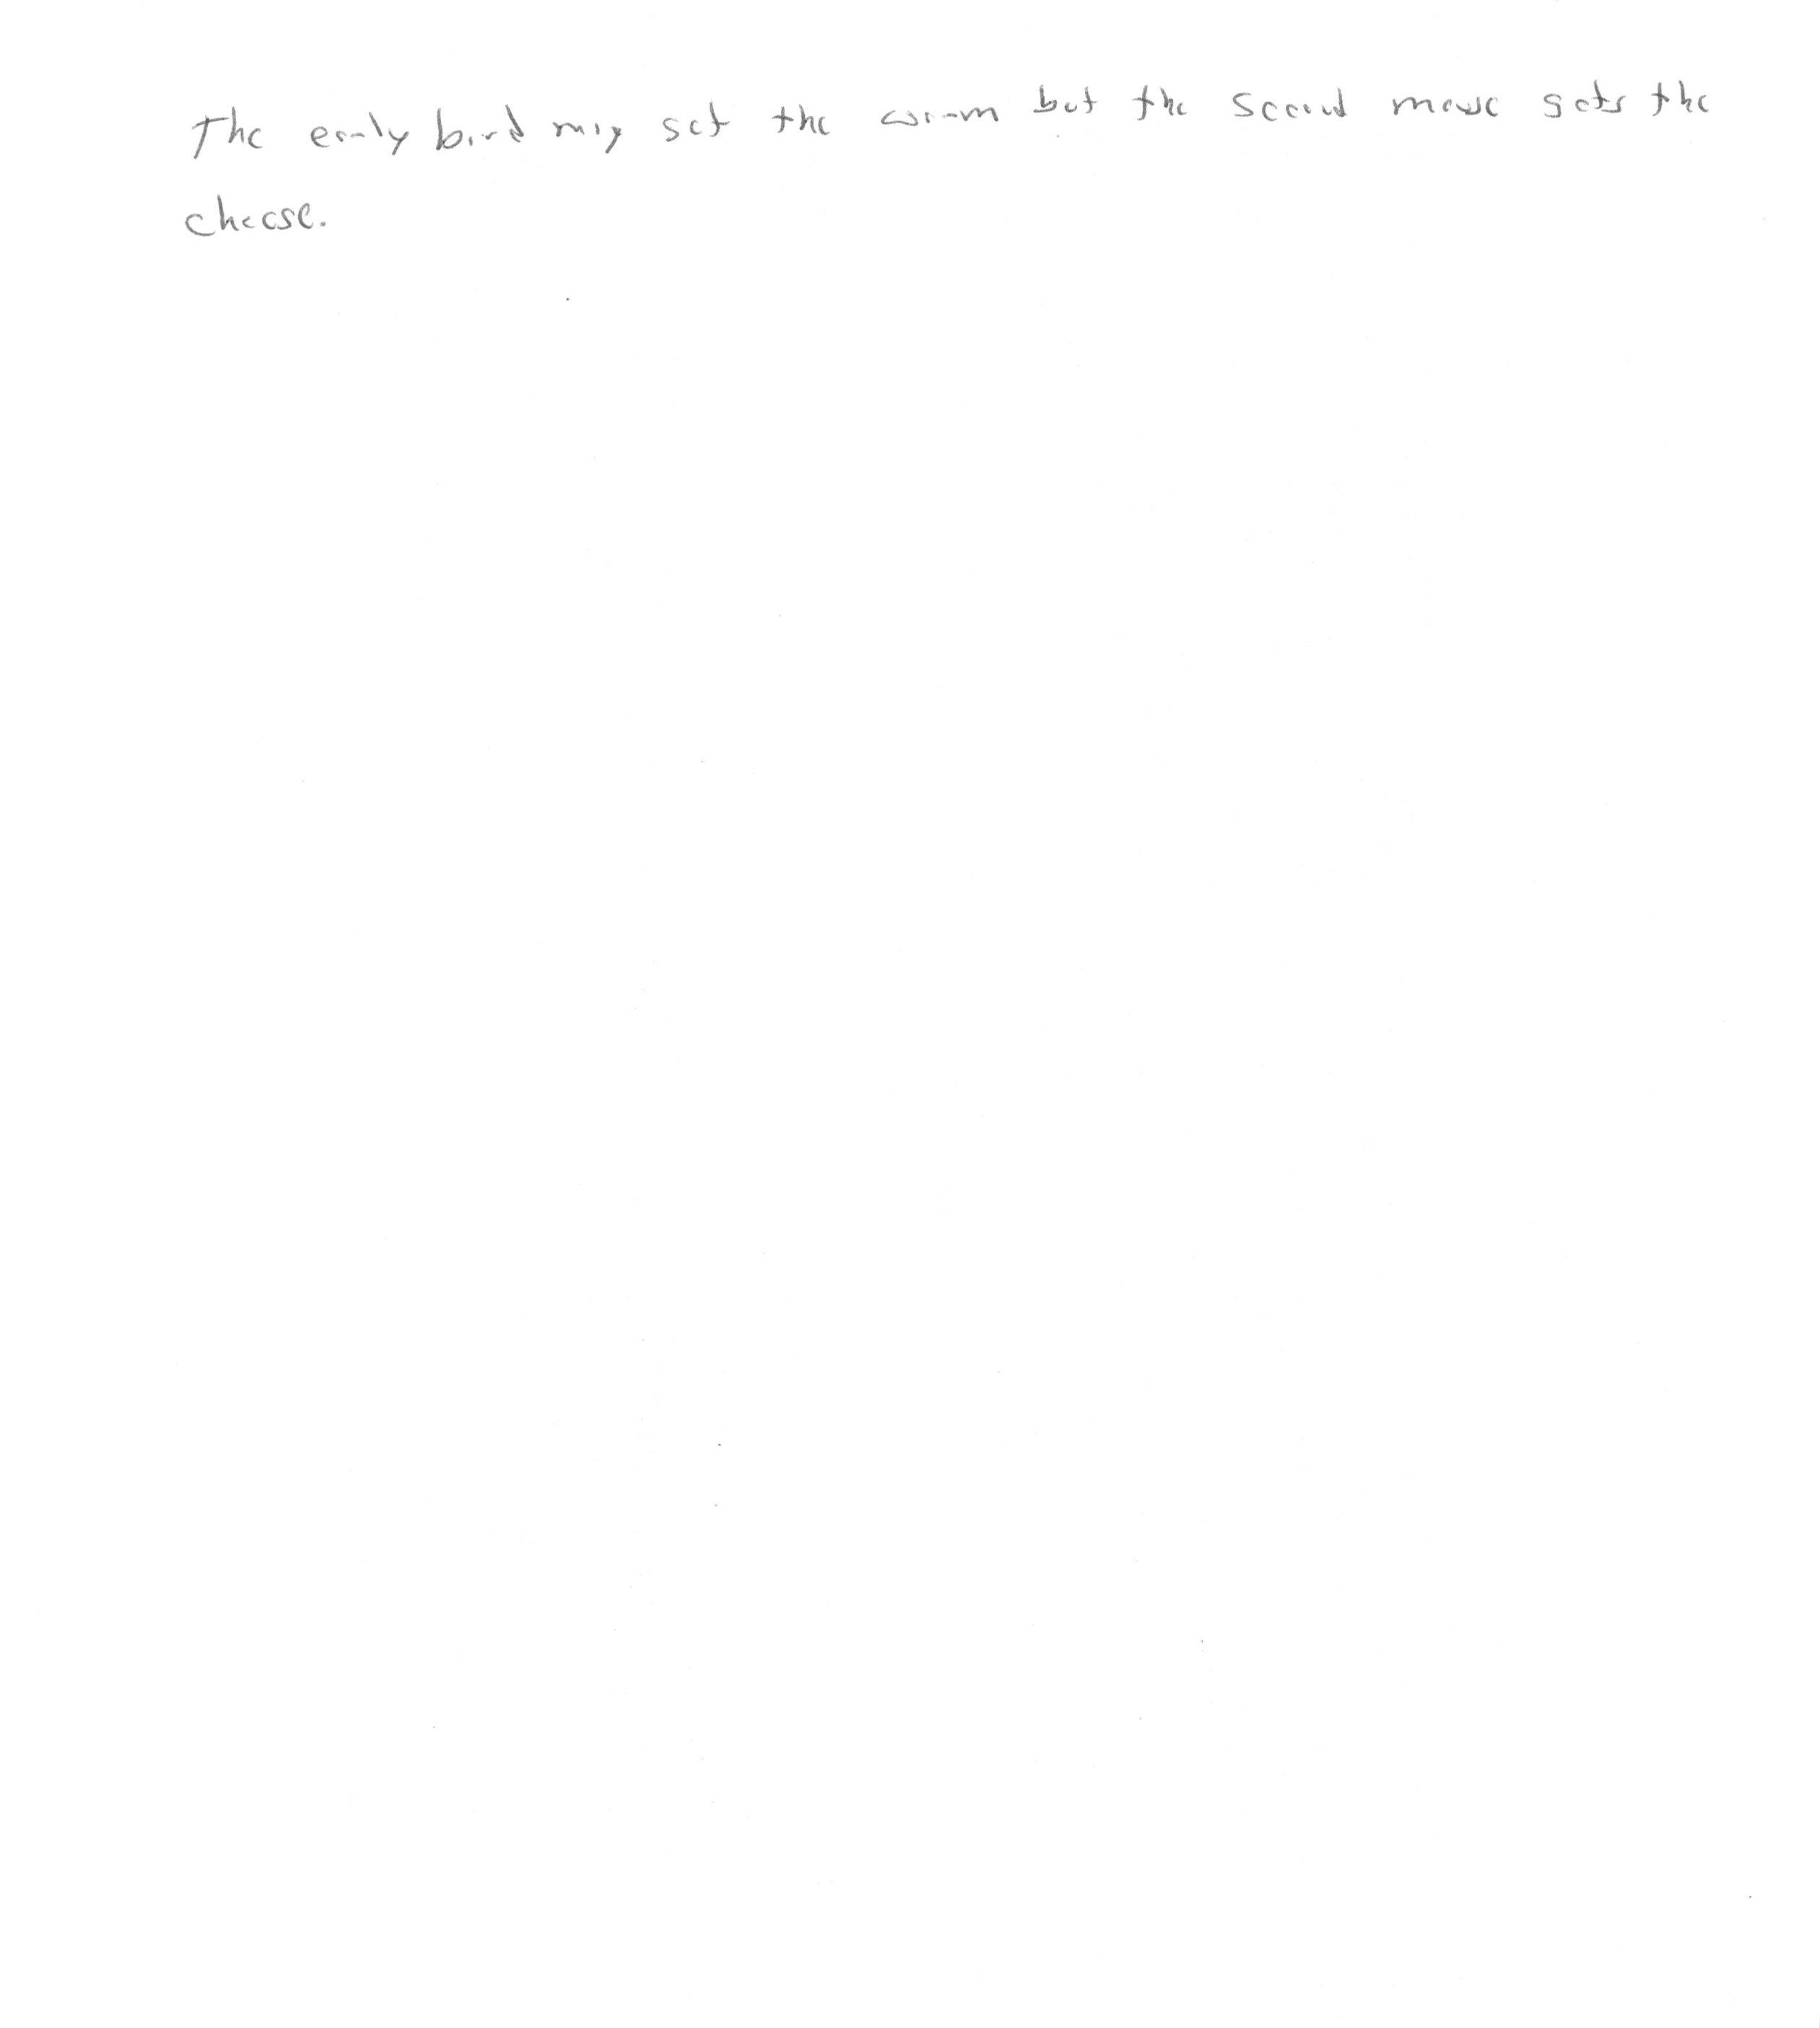 The early bird may get the worm but the second mouse gets the
cheese.